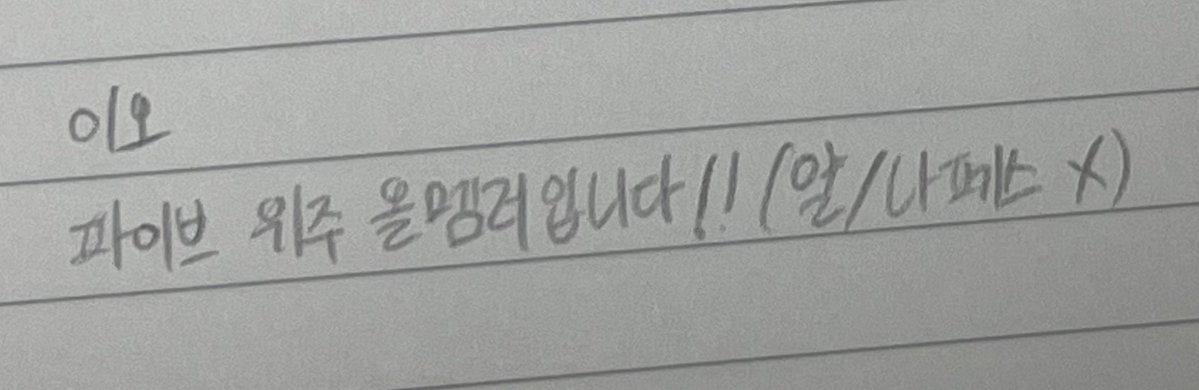 이오
파이브 위주 올멤러입니다!! (알/나페스 X)